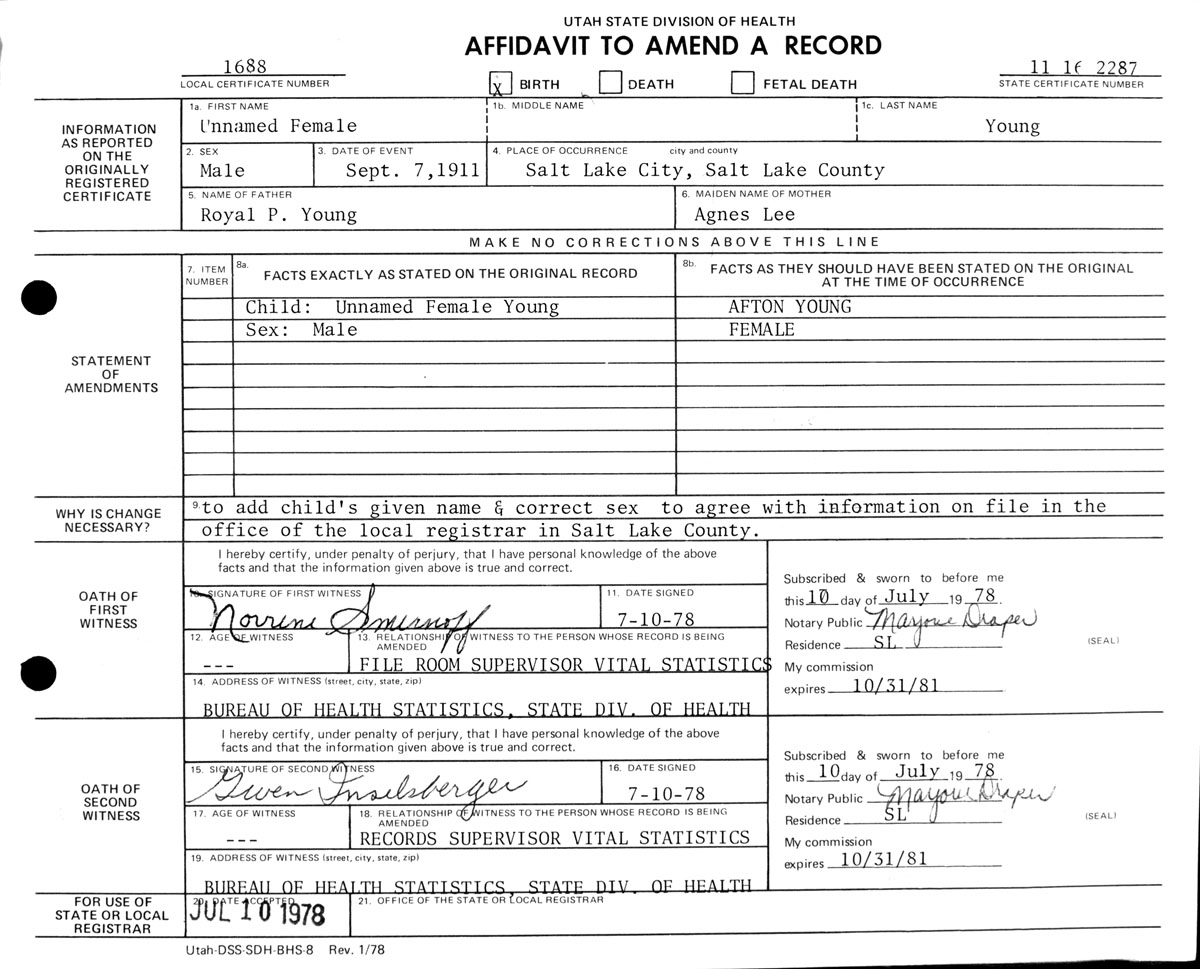 UTAH STATE DIVISION OF HEALTH
AFFIDAVIT TO AMEND A RECORD
1688
LOCAL CERTIFICATE NUMBER
X BIRTH DEATH FETAL DEATH
11 16 2287
STATE CERTIFICATE NUMBER
INFORMATION
AS REPORTED
ON THE
ORIGINALLY
REGISTERED
CERTIFICATE
1a. FIRST NAME 1b. MIDDLE NAME 1c. LAST NAME
Unnamed Female Young
2. SEX 3. DATE OF EVENT 4. PLACE OF OCCURRENCE city and county
Male Sept. 7,1911 Salt Lake City, Salt Lake County
5. NAME OF FATHER 6. MAIDEN NAME OF MOTHER
Royal P. Young Agnes Lee
MAKE NO CORRECTIONS ABOVE THIS LINE
STATEMENT
OF
AMENDMENTS
7. ITEM
NUMBER
8a. FACTS EXACTLY AS STATED ON THE ORIGINAL RECORD
8b. FACTS AS THEY SHOULD HAVE BEEN STATED ON THE ORIGINAL
AT THE TIME OF OCCURRENCE
Child: Unnamed Female Young AFTON YOUNG
Sex: Male FEMALE
WHY IS CHANGE
NECESSARY?
9. to add child's given name & correct sex to agree with information on file in the
office of the local registrar in Salt Lake County.
OATH OF
FIRST
WITNESS
I hereby certify, under penalty of perjury, that I have personal knowledge of the above
facts and that the information given above is true and correct.
10. SIGNATURE OF FIRST WITNESS 11. DATE SIGNED
Norrene Smirnoff 7-10-78
12. AGE OF WITNESS 13. RELATIONSHIP OF WITNESS TO THE PERSON WHOSE RECORD IS BEING
AMENDED
--- FILE ROOM SUPERVISOR VITAL STATISTICS
14. ADDRESS OF WITNESS (street, city, state, zip)
BUREAU OF HEALTH STATISTICS, STATE DIV. OF HEALTH
Subscribed & sworn to before me
this 10 day of July 19 78.
Notary Public Marjorie Draper
Residence SL
(SEAL)
My commission
expires 10/31/81
OATH OF
SECOND
WITNESS
I hereby certify, under penalty of perjury, that I have personal knowledge of the above
facts and that the information given above is true and correct.
15. SIGNATURE OF SECOND WITNESS 16. DATE SIGNED
Gwen Inselsberger 7-10-78
17. AGE OF WITNESS 18. RELATIONSHIP OF WITNESS TO THE PERSON WHOSE RECORD IS BEING
AMENDED
--- RECORDS SUPERVISOR VITAL STATISTICS
19. ADDRESS OF WITNESS (street, city, state, zip)
BUREAU OF HEALTH STATISTICS, STATE DIV. OF HEALTH
Subscribed & sworn to before me
this 10 day of July 19 78.
Notary Public Marjorie Draper
Residence SL
(SEAL)
My commission
expires 10/31/81
FOR USE OF
STATE OR LOCAL
REGISTRAR
20. DATE ACCEPTED 21. OFFICE OF THE STATE OR LOCAL REGISTRAR
JUL 10 1978
Utah-DSS-SDH-BHS-8 Rev. 1/78